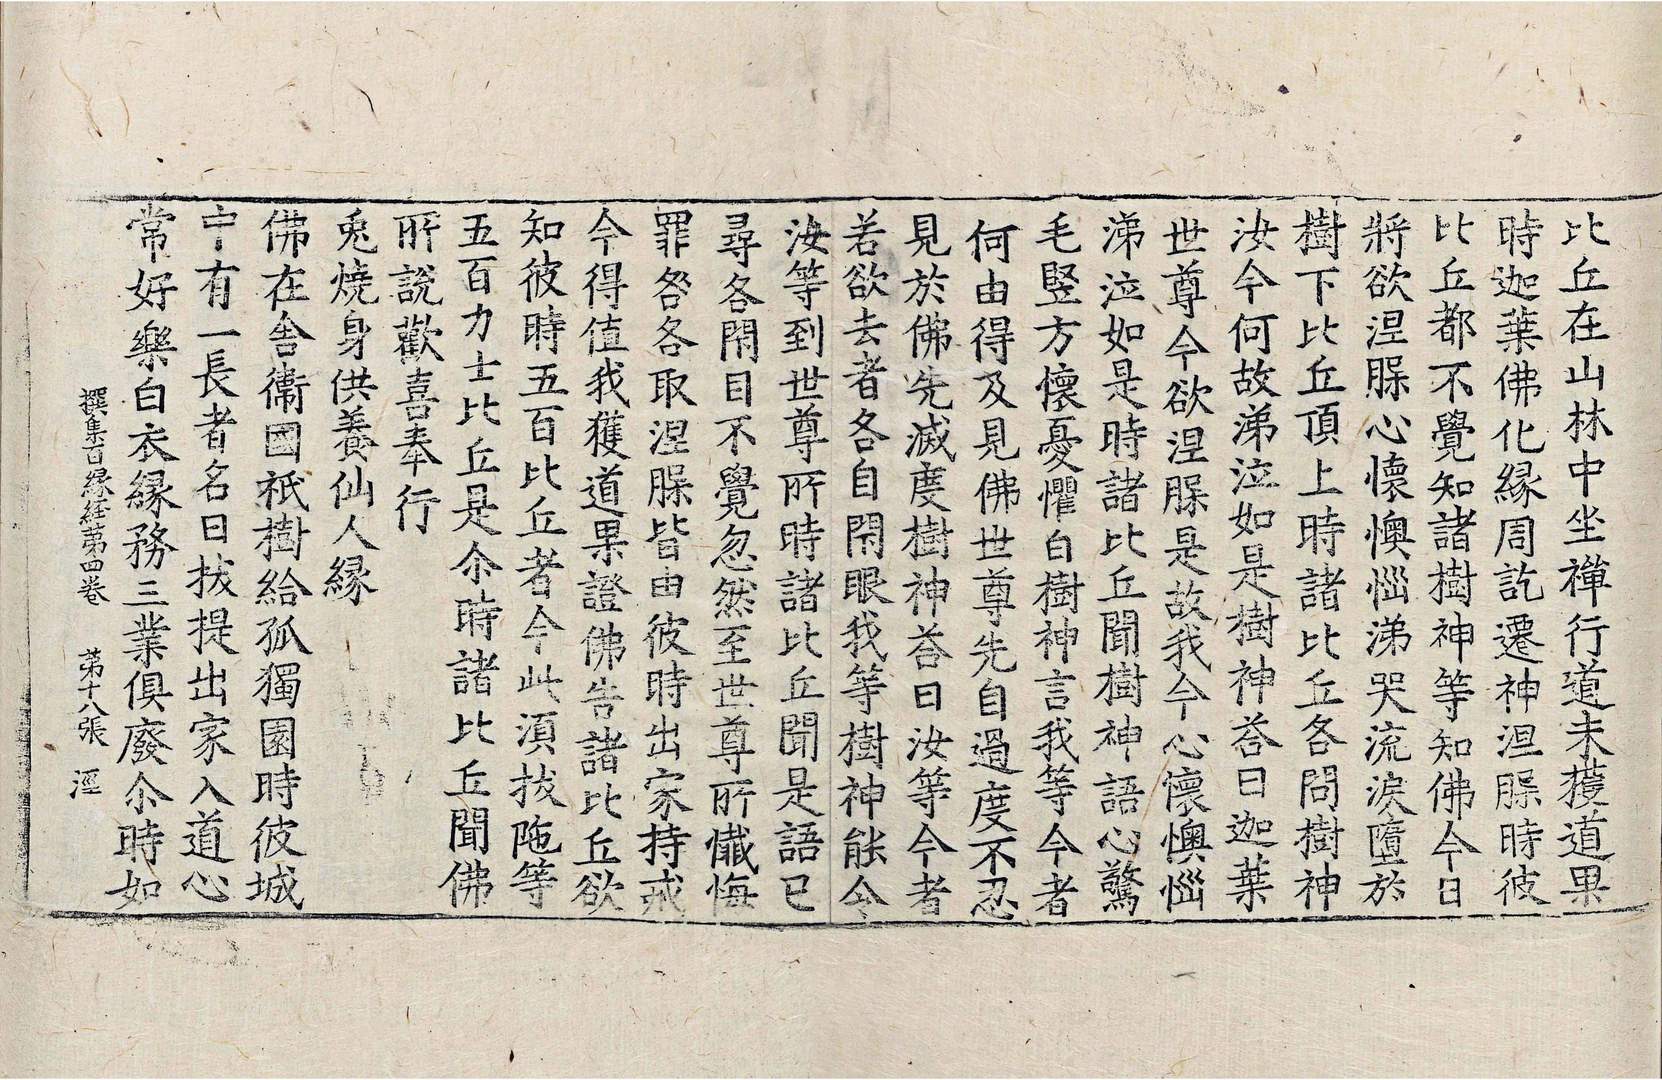 比丘在山林中坐禪行道未獲道果
時迦葉佛化縁周訖遷神涅膎時彼
比丘都不覺知諸樹神等知佛今日
將欲涅膎心懷懊惱涕哭流淚墮於
樹下比丘頂上時諸比丘各問樹神
汝今何故涕泣如是樹神荅曰迦葉
世尊今欲涅膎是故我今心懷懊惱
涕泣如是時諸比丘聞樹神語心驚
毛竪方懷憂懼白樹神言我等今者
何由得及見佛世尊先自過度不忍
見於佛先滅度樹神荅曰汝等今者
若欲去者各自閇眼我等樹神能令
汝等到世尊所時諸比丘聞是語已
尋各閇目不覺忽然至世尊所懴悔
罪咎各取涅膎皆由彼時出家持戒
今得值我獲道果證佛告諸比丘欲
知彼時五百比丘者今此湏拔陁等
五百力士比丘是尒時諸比丘聞佛
所說歡喜奉行
兎燒身供養仙人縁
佛在舍衞國祇樹給孤獨園時彼城
中有一長者名曰拔提出家入道心
常好樂白衣縁務三業俱廢尒時如
撰集百縁經第四卷 第十八張 涇